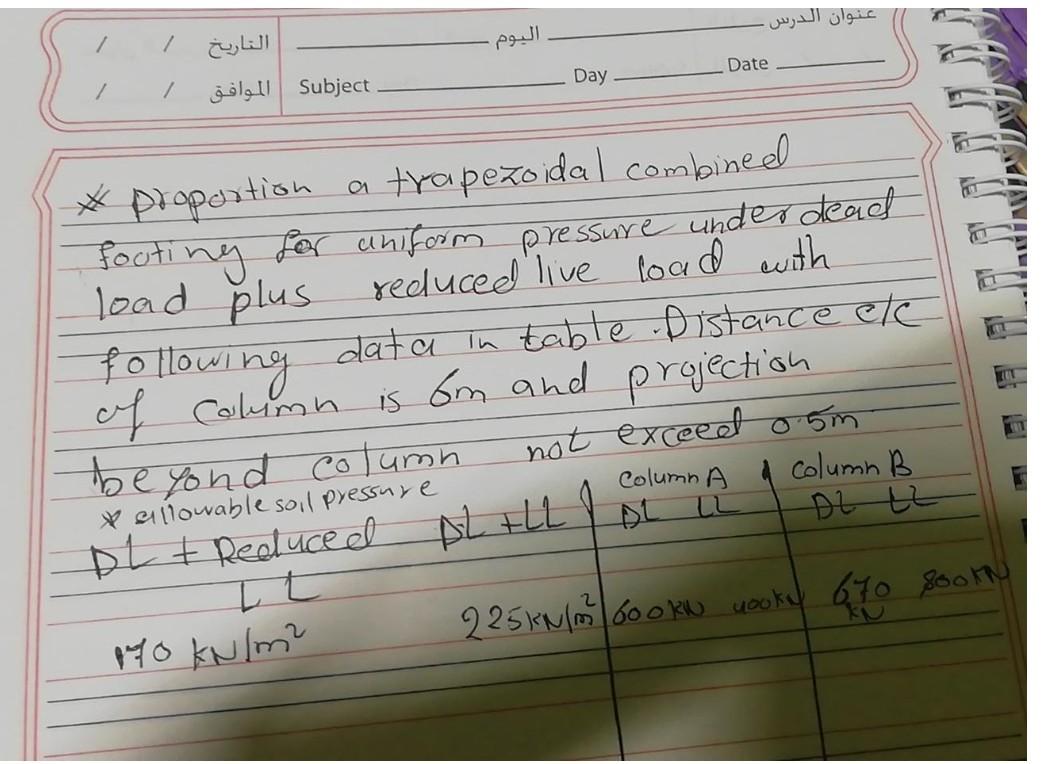 عنوان الدرس اليوم التاريخ / /
Subject Day Date الموافق / /
* proportion a trapezoidal combined
footing for uniform pressure under dead
load plus reduced live load with
following data in table. Distance c/c
of Column is 6m and projection
beyond column not exceed 0.5m
* allowable soil pressure
Column A Column B
DL + Reduced LL DL + LL DL LL DL LL
170 kN/m² 225 kN/m² 600 kN 400 kN 670 kN 800 kN